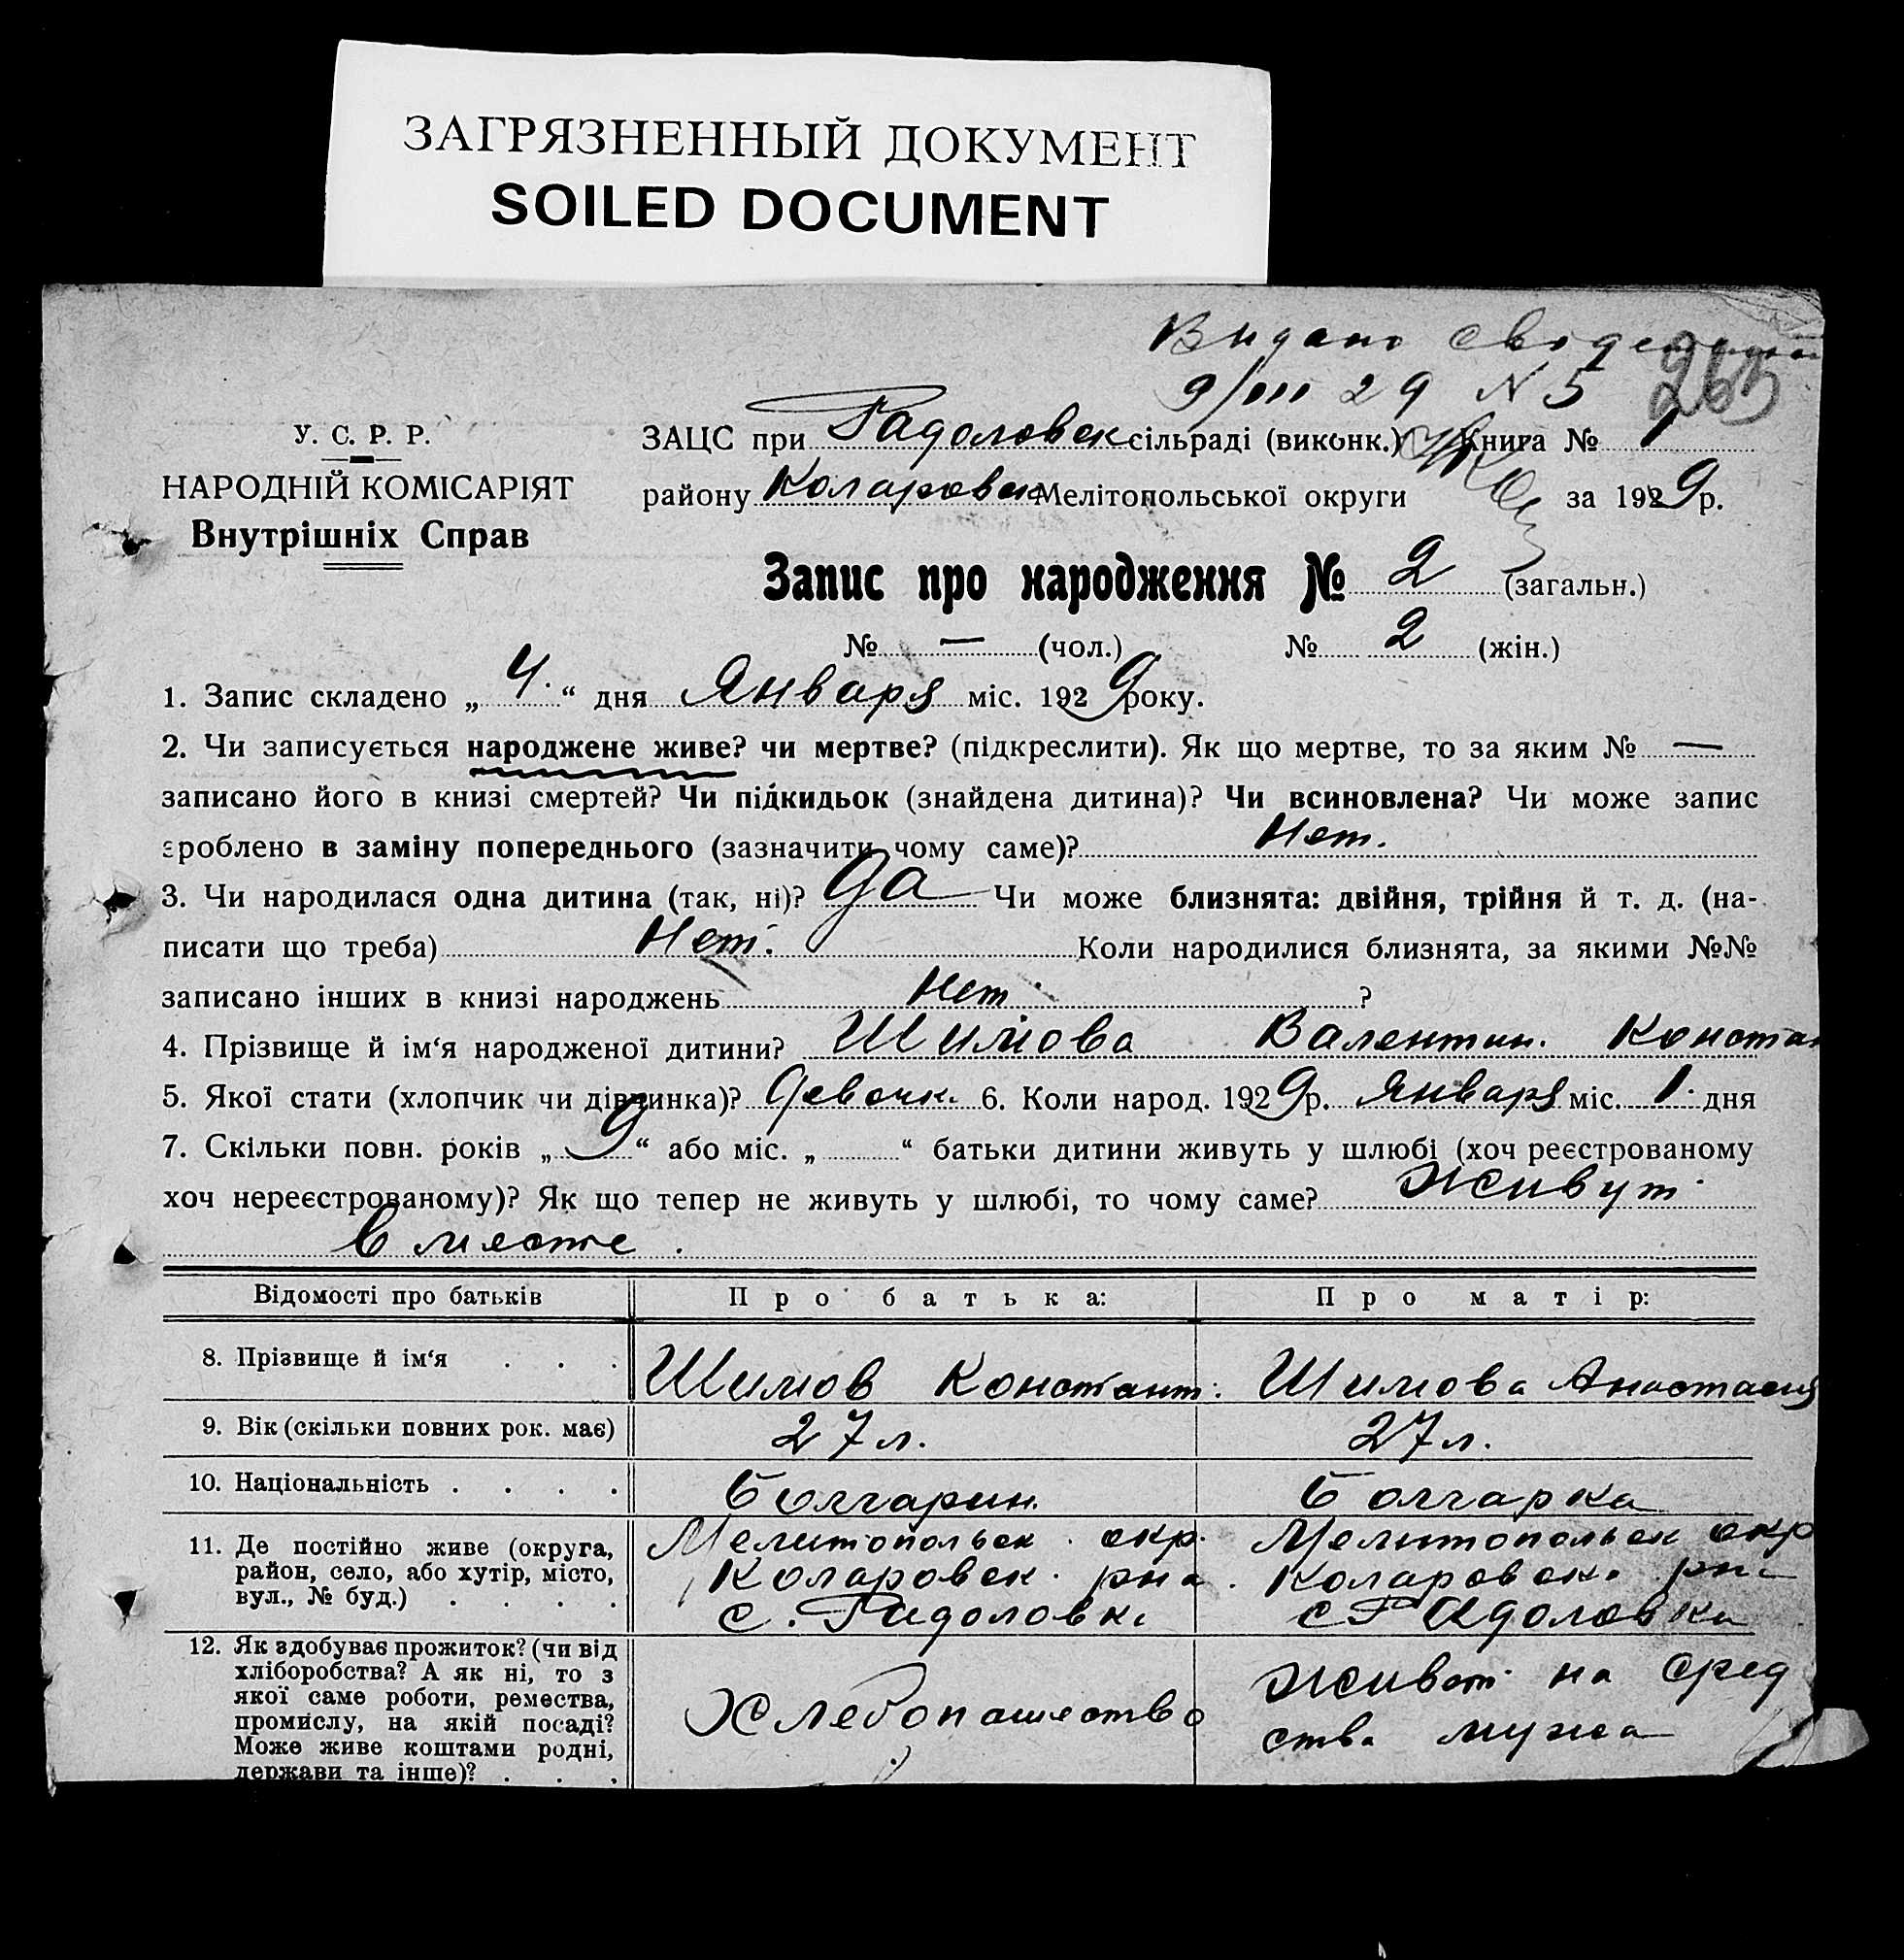 ЗАГРЯЗНЕННЫЙ ДОКУМЕНТ
SOILED DOCUMENT
Видано
9/III 29 N 5
265
У. С. Р. Р.
НАРОДНІЙ КОМІСАРІЯТ
Внутрішніх Справ
ЗАЦС при Радоловск сільраді (виконк.) Книга № 1
району Коларовск Мелітопольської округи за 1929 р.
Запис про народження № 2 (загальн.)
№ — (чол.) № 2 (жін.)
1. Запис складено „4.“ дня Января міс. 1929 року.
2. Чи записується народжене живе? чи мертве? (підкреслити). Як що мертве, то за яким № —
записано його в книзі смертей? Чи підкидьок (знайдена дитина)? Чи всиновлена? Чи може запис
зроблено в заміну попереднього (зазначити чому саме)? Нет.
3. Чи народилася одна дитина (так, ні)? Да Чи може близнята: двійня, трійня й т. д. (на-
писати що треба) Нет. Коли народилися близнята, за якими №№
записано інших в книзі народжень Нет ?
4. Прізвище й ім‘я народженої дитини? Шимова Валентин. Констан
5. Якої стати (хлопчик чи дівчинка)? Девочк. 6. Коли народ. 1929 р. Января міс. 1. дня
7. Скільки повн. років „9“ або міс. „ “ батьки дитини живуть у шлюбі (хоч реєстрованому
хоч нереєстрованому)? Як що тепер не живуть у шлюбі, то чому саме? Живут
вместе.
Відомості про батьків Про батька: Про матір:
8. Прізвище й ім‘я . . . Шимов Констант. Шимова Анастасия
9. Вік (скільки повних рок. має) 27 л. 27 л.
10. Національність . . . . Болгарин. Болгарка
11. Де постійно живе (округа, Мелитопольск. окр. Мелитопольск окр
район, село, або хутір, місто, Коларовск. рна. Коларовск. рна
вул., № буд.) . . . . с. Радоловка с Радоловка
12. Як здобуває прожиток? (чи від
хліборобства? А як ні, то з
якої саме роботи, ремества,
промислу, на якій посаді?
Може живе коштами родні,
держави та інше)? . . .
Хлебопашество
Живет на сред
ства мужа